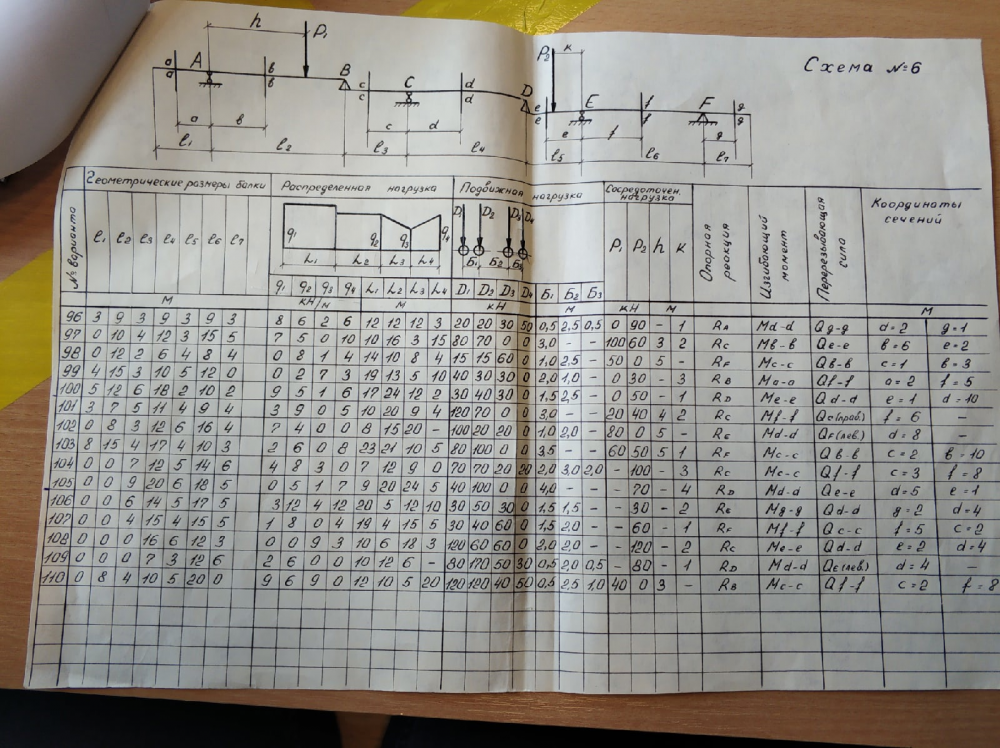 Схема №6
h P₁ P₂ к
а а A в в B с с C d d D e e E f f F g g
а в с d e f g
ℓ₁ ℓ₂ ℓ₃ ℓ₄ ℓ₅ ℓ₆ ℓ₇
№ варианта Геометрические размеры балки Распределенная нагрузка Подвижная нагрузка Сосредоточен. нагрузка Опорная реакция Изгибающий момент Перерезывающая сила Координаты сечений
ℓ₁ ℓ₂ ℓ₃ ℓ₄ ℓ₅ ℓ₆ ℓ₇ q₁ q₂ q₃ q₄ L₁ L₂ L₃ L₄ D₁ D₂ D₃ D₄ Б₁ Б₂ Б₃ P₁ P₂ h к
q₁ q₂ q₃ q₄ L₁ L₂ L₃ L₄ D₁ D₂ D₃ D₄ Б₁ Б₂ Б₃
м кН/м м кН м кН м м
96 3 9 3 9 3 9 3 8 6 2 6 12 12 12 3 20 20 30 50 0,5 2,5 0,5 0 90 - 1 RA Md-d Qg-g d=2 g=1
97 0 10 4 12 3 15 5 7 5 0 10 10 16 3 15 80 70 0 0 3,0 - - 100 60 3 2 RC Mв-в Qe-e в=6 e=2
98 0 12 2 6 4 8 4 0 8 1 4 14 10 8 4 15 15 60 0 1,0 2,5 - 50 0 5 - RF Mc-c Qв-в c=1 в=3
99 4 15 3 10 5 12 0 0 2 7 3 19 13 5 10 40 30 30 0 2,0 1,0 - 0 30 - 3 RB Ma-a Qf-f a=2 f=5
100 5 12 6 18 2 10 2 9 5 1 6 17 24 12 2 30 40 30 0 1,5 2,5 - 0 50 - 1 RD Me-e Qd-d e=1 d=10
101 3 7 5 11 4 9 4 3 9 0 5 10 20 9 4 120 70 0 0 3,0 - - 20 40 4 2 RC Mf-f Qc(прав.) f=6 -
102 0 8 3 12 6 16 4 7 4 0 0 8 15 20 - 100 20 20 0 1,0 2,0 - 80 0 5 - RE Md-d QF(лев.) d=8 -
103 8 15 4 17 4 10 3 2 6 0 8 23 21 10 5 80 100 0 0 3,5 - - 60 50 5 1 RF Mc-c Qв-в c=2 в=10
104 0 0 7 12 5 14 6 4 8 3 0 7 12 9 0 70 70 20 20 2,0 3,0 2,0 - 100 - 3 RC Mc-c Qf-f c=3 f=8
105 0 0 9 20 6 18 5 0 5 1 7 9 20 24 5 40 100 0 0 4,0 - - - 70 - 4 RD Md-d Qe-e d=5 e=1
106 0 0 6 14 5 17 5 3 12 4 12 20 5 12 10 30 50 30 0 1,5 1,5 - - 30 - 2 RE Mg-g Qd-d g=2 d=4
107 0 0 4 15 4 15 5 1 8 0 4 19 4 15 5 30 40 60 0 1,5 2,0 - - 60 - 1 RF Mf-f Qc-c f=5 c=2
108 0 0 0 16 6 12 3 0 0 9 3 10 6 18 3 120 60 60 0 2,0 2,0 - - 120 - 2 RC Me-e Qd-d e=2 d=4
109 0 0 0 7 3 12 6 2 6 0 0 10 12 6 - 80 170 50 30 0,5 2,0 0,5 - 80 - 1 RD Md-d QE(лев.) d=4 -
110 0 8 4 10 5 20 0 9 6 9 0 12 10 5 20 120 120 40 50 0,5 2,5 1,0 40 0 3 - RB Mc-c Qf-f c=2 f=8